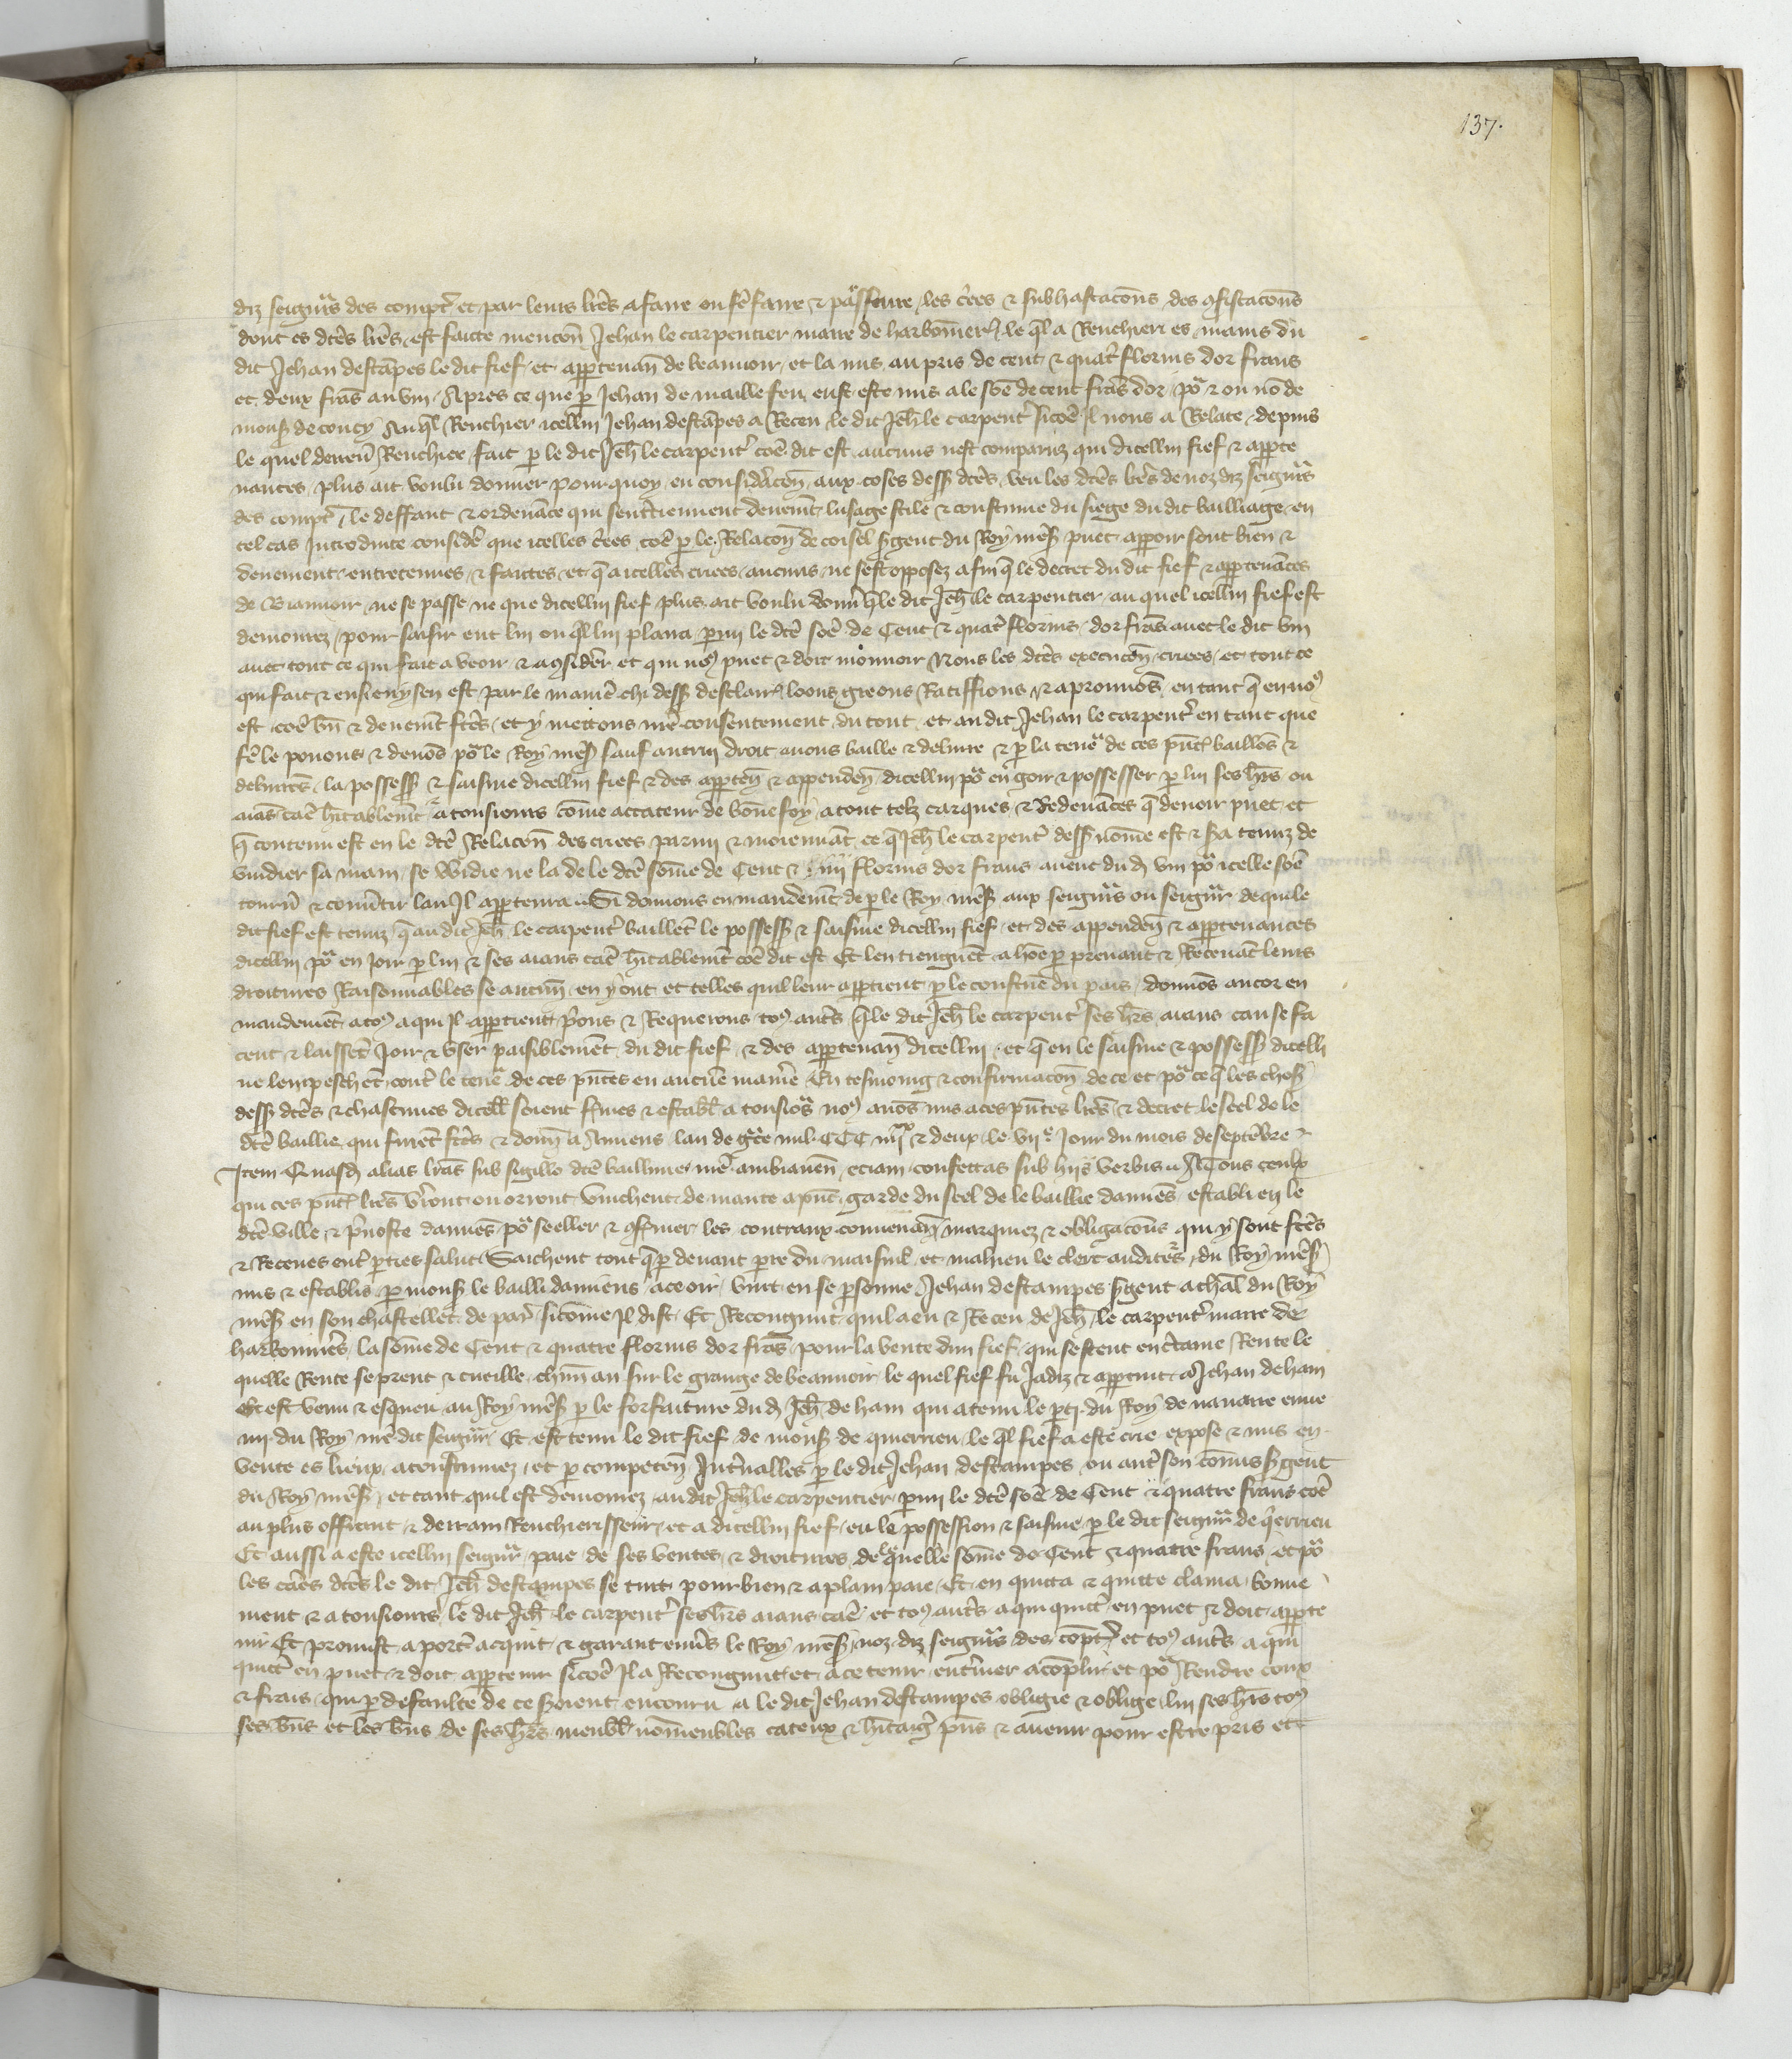 137.
diz seigñrs des compt̃ et par leurs lr̃es a faire ou fẽ faire & parfaire les criees & subhastacõns des ꝯfiscacõns
dont es dc̃es lr̃es est faitte mencõn Jehan le carpentier maire de harbonnier̃ le q̃l a Renchieri es mains du
dit Jehan destãpes le dit fief et appartenañ de beauuoir et la mis au pris de cent & quat̃ florins dor frans
et deux frãs au vin Apres ce que p Jehan de maillefeu eust este mis a le sõe de cent frãs dor põ & ou nõ de
monß de coucy Au q̃l Renchier icellui Jehan destãpes a Receu le dit Jeh̃ le carpent̃ sicõe il nous a Relate depuis
le quel derreñ Renchier fait p le dit Jeh̃ le carpent̃ cõe dit est aucuns nest comparuz qui dicellui fief & apparte
nances plus ait voulu donner pour quoy eu consideracõn aux coses dess̃ dc̃es veu les dc̃es lr̃es de noz diz seigñrs
des compt̃ le deffaut & ordenãce qui sent̃tiennent deuemt̃ lusage stile & coustume du siege du dit bailliage en
tel cas Introduite consideŕ que icelles criees cõe p le Relacõn de coisel s̃gent du Roy nr̃eß puet apparoir sont bien &
deuement entretenues & faictes et q̃ a icelles criees aucuns ne sest opposez afin q̃ le decret du dit fief & appartenãces
de Biauuoir ne se passe ne que dicellui fief plus ait voulu donñ q̃ le dit Jeh̃ le carpentier au quel icellui fief est
demourez pour saisir ent lui ou q̃l lui plaira parmi le dc̃e sõe de Cent & quat̃ florins dor frãs auec le dit vin
auec tout ce qui fait a veoir & a ꝯsideŕ et qui noꝰ puet & doit mouuoir Nous les dc̃es execucõn criees et tout ce
qui fait & ensieuy sen est par le maniẽ chi dess̃ desclair̃ loons greons Ratiffions & aprouuõs en tant q̃ en noꝰ
est cõe bñ & deuemt̃ fc̃es et y mettons nr̃e consentement du tout et au dit Jehan le carpent̃ en tant que
fẽ le pouons & deuõs põ le Roy nr̃eß sauf autrui droit auons baille & deliure & p la teneᷣ de ces pñt̃ baillõs &
deliurõs la possess̃ & saisine dicellui fief & des apparteñ & appendeñ dicellui põ en goir & possesser p lui ses hr̃s ou
aiãs cãe hitablemt̃ a tousiours cõme accateur de bõne foy a tout telz carques & Redeuãces q̃ deuoir puet et
q̃ contenu est en le dc̃e Relacõn des criees parmi & moiennãt ce q̃ Jeh̃ le carpent̃ dess̃ nõme est & s̃a tenuz de
vuidier sa main se widie ne la de le dc̃e sõme de Cent & iiii florins dor frans auenc du dͥ vin põ icelle sõe
tourñ & conũtir lau Il appartenra Si donnons en mandemt̃ de p le Roy nr̃eß aux seigñrs ou seigñr de qui le
dit fief est tenuz q̃ au dit Jeh̃ le carpent̃ baillẽt le possess̃ & saisine dicellui fief et des appendeñ & appartenances
dicellui põ en Joir p lui & ses aians cãe hitablemt̃ cõe dit est Et len tiengnẽt a hõe p prenant & Receuãt leurs
droitures Raisonnables se aucuñ en y ont et telles quil leur appartient p le coustuẽ du pais donnõs ancor en
mandement a toꝰ a qui Il appartient pr̃ons & Requerons toꝰ autr̃s q̃ le dit Jeh̃ le carpent̃ ses hr̃s aians cause fa
cent & laissẽt Joir & vser paisiblemẽt du dit fief & des appartenañ dicellui et q̃ en le saisine & possess̃ dicelli
ne lempeschẽt cont̃ le teneᷣ de ces pñtes en aucũe maniẽ En tesmoing & confirmacõn de ce et põ ce q̃ les choß
dess̃ dc̃es & chascunes dicell̃ soient fr̃mes & establ̃ a tousiõs noꝰ auõs mis a ces pñtes lr̃es & decret le seel de le
dc̃e baillie qui furẽt fc̃es & donñ a Amiens lan de gr̃ce mil CCC iiiixx & deux le viie Jour du mois de septẽbre
Item Quasdͣ alias lr̃as sub sigillo dc̃e baillivie nr̃e ambianeñ eciam confectas sub hijs verbis A toꝰ ceulx
qui ces pñt̃ lr̃es verront ou orront vinchent de mante a pñt garde du seel de le baillie damiẽs establi en le
dc̃e ville & p̃uoste damiẽs põ seeller & ꝯfr̃mer les contraux conuenañ marquiez & obligacõns qui y sont fc̃es
& Receues ent̃ p̃ties salut Saichent tout q̃ p deuant pierre du maisnil et mahieu le clerc auditẽrs du Roy nr̃eß
mis & establis p monß le bailli damiens a ce oir vint en se p̃sonne Jehan destampes s̃gent a cheᷣal du Roy
nr̃eß en son chastellet de par̃ sicõme Il dist Et Recongnut quil a eu & Receu de Jeh̃ le carpent̃ maire de
harbonniẽrs la sõme de Cent & quatre florins dor frãs pour la vente dun fief qui sestent en c̃taine Rente le
quelle Rente se prent & cueille chũn an sur le grange de beauuoir le quel fief fu Jadiz & appartint a Jehan de ham
Et est venu & esqueu au Roy nr̃eß p le forfaiture du dͥ Jeh̃ de ham qui a tenu le p̃ti du Roy de nauarre enne
mi du Roy nr̃e dit seigñr Et est tenu le dit fief de monß de quierrieu le q̃l fief a este crie expose & mis en
vente es lieux acoustumez et p competeñ Int̃ualles p le dit Jehan destampes ou aut̃ son cõmis s̃gent
du Roy nr̃eß et tant quil est demourez au dit Jeh̃ le carpentier parmi le dc̃e sõe de Cent & quatre frans cõe
au plus offrant & derrain Renchierisseur et a dicellui fief eu le possession & saisine p le dit seigñr de q̃errieu
Et aussi a este icellui seigñr paie de ses ventes & droitures de lequelle sõme de Cent & quatre frans et põ
les cãses dc̃es le dit Jeh̃ destampes se tint pour bien & a plain paie Et en quitta & quitte clama bonne
ment & a tousiours le dit Jeh̃ le carpent̃ ses hr̃s aians cãe et toꝰ autr̃s a qui quitt̃ en puet & doit apparte
nir Et promist a porter acquit & garant enũs le Roy nr̃eß noz diz seigñrs des cõpt̃ et toꝰ autr̃s a qui
quitt̃ en puet & doit appartenir sicõe Il a Recongnut et a ce tenir enterĩner acõplir et põ Rendre coux
& frais qui p defaulte de ce s̃oient encouru a le dit Jehan destampes obligie & oblige lui ses hr̃s toꝰ
ses bñs et les bñs de ses hr̃s meubl̃ nõ meubles cateux & hitaig̃ pñs & auenir pour estre pris et